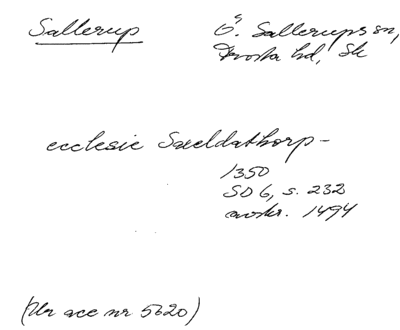 Sallerup
Ö. Sallerups sn,
Frosta hd, Sk
ecclesie Sæeldathorp -
1350
SD 6, s. 232
avskr. 1494
(Ur acc nr 5620)